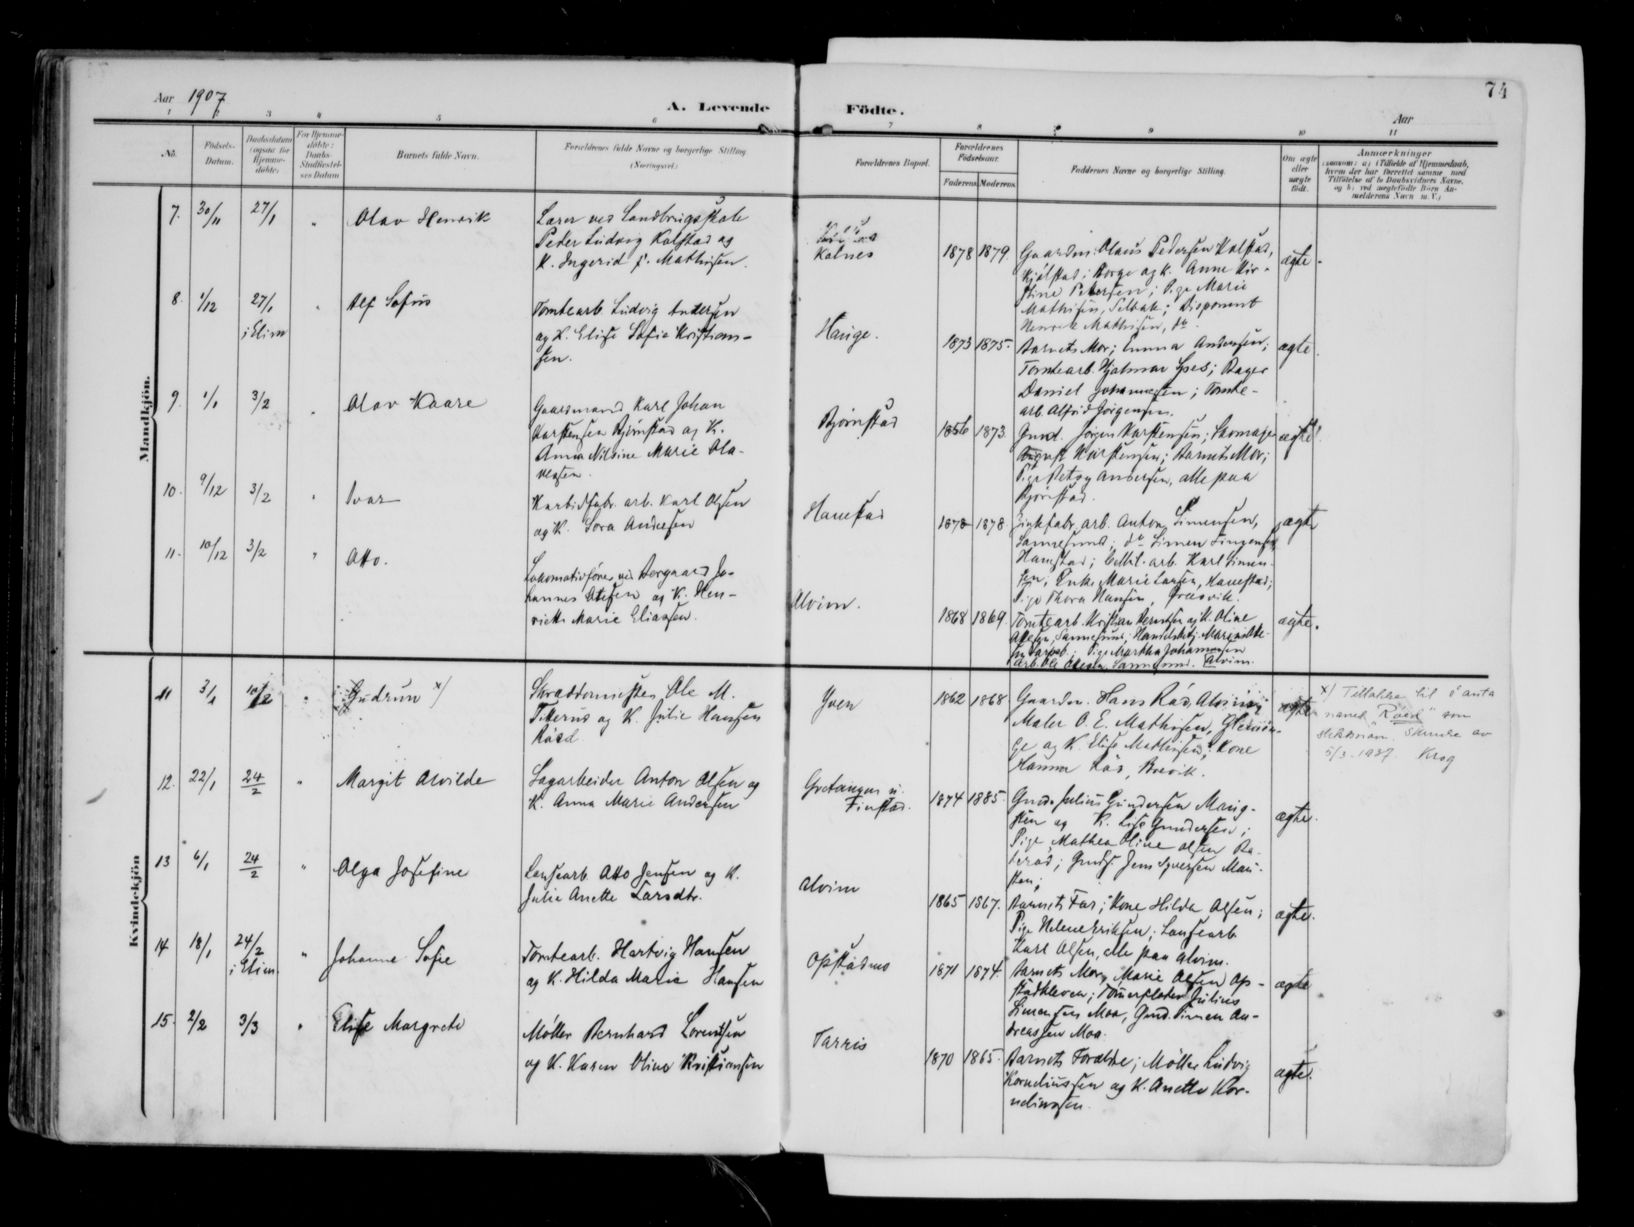 74
Aar 1907
A. Levende Födte.
Aar
1 2 3 4 5 6 7 8 9 10 11
No.
Födsels-
Datum.
Daabsdatum
(ogsaa for
Hjemme-
döbte)
For Hjemme-
döbte:
Daabs-
Stadfæstel-
ses Datum
Barnets fulde Navn.
Forældrenes fulde Navne og borgerlige Stilling
(Næringsvei)
Forældrenes Bopæl.
Forældrenes
Födselsaar.
Faderens Moderens
Faddernes Navne og borgerlige Stilling.
Om ægte
eller
uægte
født.
Anmærkninger
Mandkjön.
7. 30/11 27/1 " Olav Henrik
Lærer ved Landbrugsskole
Peder Ludvig Kolstad og
K. Ingerid f. Mathisen.
Kalnes
1878 1879
Gaardm. Olaus Pedersen Kolstad,
Borge og K. Anne Kir-
stine Petersen; Pige Marie
Mathisen, Selbak; Disponent
Henrik Mathisen, do.
ægte.
8. 1/12 27/1 i Elim " Alf Sofus
Tomtearb. Ludvig Andersen
og K. Elise Sofie Kristian-
sen.
Hauge.
1873 1875.
Barnets Mor; Emma Andersen;
Tomtearb. Hjalmar Ipes; Bager
Daniel Johannesen; Tomte-
arb. Alfred Jörgensen.
ægte.
9. 1/1 3/2 " Olav Kaare
Gaardmand Karl Johan
Karstensen Bjørnstad og K.
Anna Nilsine Marie Ola-
vesen.
Bjørnstad
1856 1873
Gmd. Jørgen Karstensen; Skomager
August Karstensen; Barnets Mor;
Pige Betsy Andersen, alle paa
Bjørnstad.
ægte.
10. 9/12 3/2 " Ivar
Karbidfabr. arb. Karl Olsen
og K. Tora Andersen
Hanestad
1878 1878
Zinkfabr. arb. Anton Simensen,
Sannesund; do Simen
Hanestad; Karl Simen-
sen; Enke Marie Larsen, Hanestad;
Pige Thora Hansen, Greåsvik.
ægte
11. 10/12 3/2 " Otto.
Lokomotivfører ved Borgaard Jo-
hannes Ottesen og K. Hen-
riette Marie Eliassen.
Alvim.
1868 1869
Tomtearb. Kristian Berntsen og K. Oline
Ottesen, Sannesund; Handelsbetj.
Pige Martha Johannesen
Arb. Ole Olesen, Sannesund. Alvim.
ægte.
Kvindekjön
11 3/1 10/2 " Gudrun x)
Skræddermester Ole M.
Titterud og K. Julie Hansen
Råed
Yven
1862 1868
Gaardm. Hans Råd, Alvim;
Maler O. E. Mathisen, Glemmin-
ge og K. Elise Mathisen; Kone
Hanna Råd, Brevik.
ægte
x) Tillatelse til å anta
navnet "Röed" som
slektsnavn. Skrivelse av
5/3-1937. Krog
12. 22/1 24/2 " Margit Alvilde
Sagarbeider Anton Olsen og
K. Anna Marie Andersen
Gretangen u.
Finstad.
1874 1885.
Gmd. Julius Gundersen Maug-
sten og K. Lise Gundersen;
Pige Mathea Oline Olsen Ra-
kerød; Gmds. Jens Syversen Mau-
sten;
ægte.
13 6/1 24/2 " Olga Josefine
Landsearb Otto Jensen og K.
Julie Anette Larsdtr.
Alvim
1865 1867.
Barnets Far; Kone Hilda Olsen;
Pige Helene Eriksen; Landsearb
Karl Olsen, alle paa Alvim.
ægte.
14 18/1 24/2 i Elim " Johanne Sofie
Tomtearb. Hartvig Hansen
og K. Hilda Marie Hansen
Opstadmo
1871 1874.
Barnets Mor, Marie Olsen Op-
stadkleven; Tømerfløter Julius
Simensen Moa, Gmd. Simen An-
dreassen Moa.
ægte
15. 2/2 3/3 " Elise Margrete
Møller Bernhard Lorentsen
og K. Karen Oline Kristiansen
Tarris
1870 1865.
Barnets Forældre; Møller Ludvig
Korneliussen og K. Anette Kor-
neliussen.
ægte.